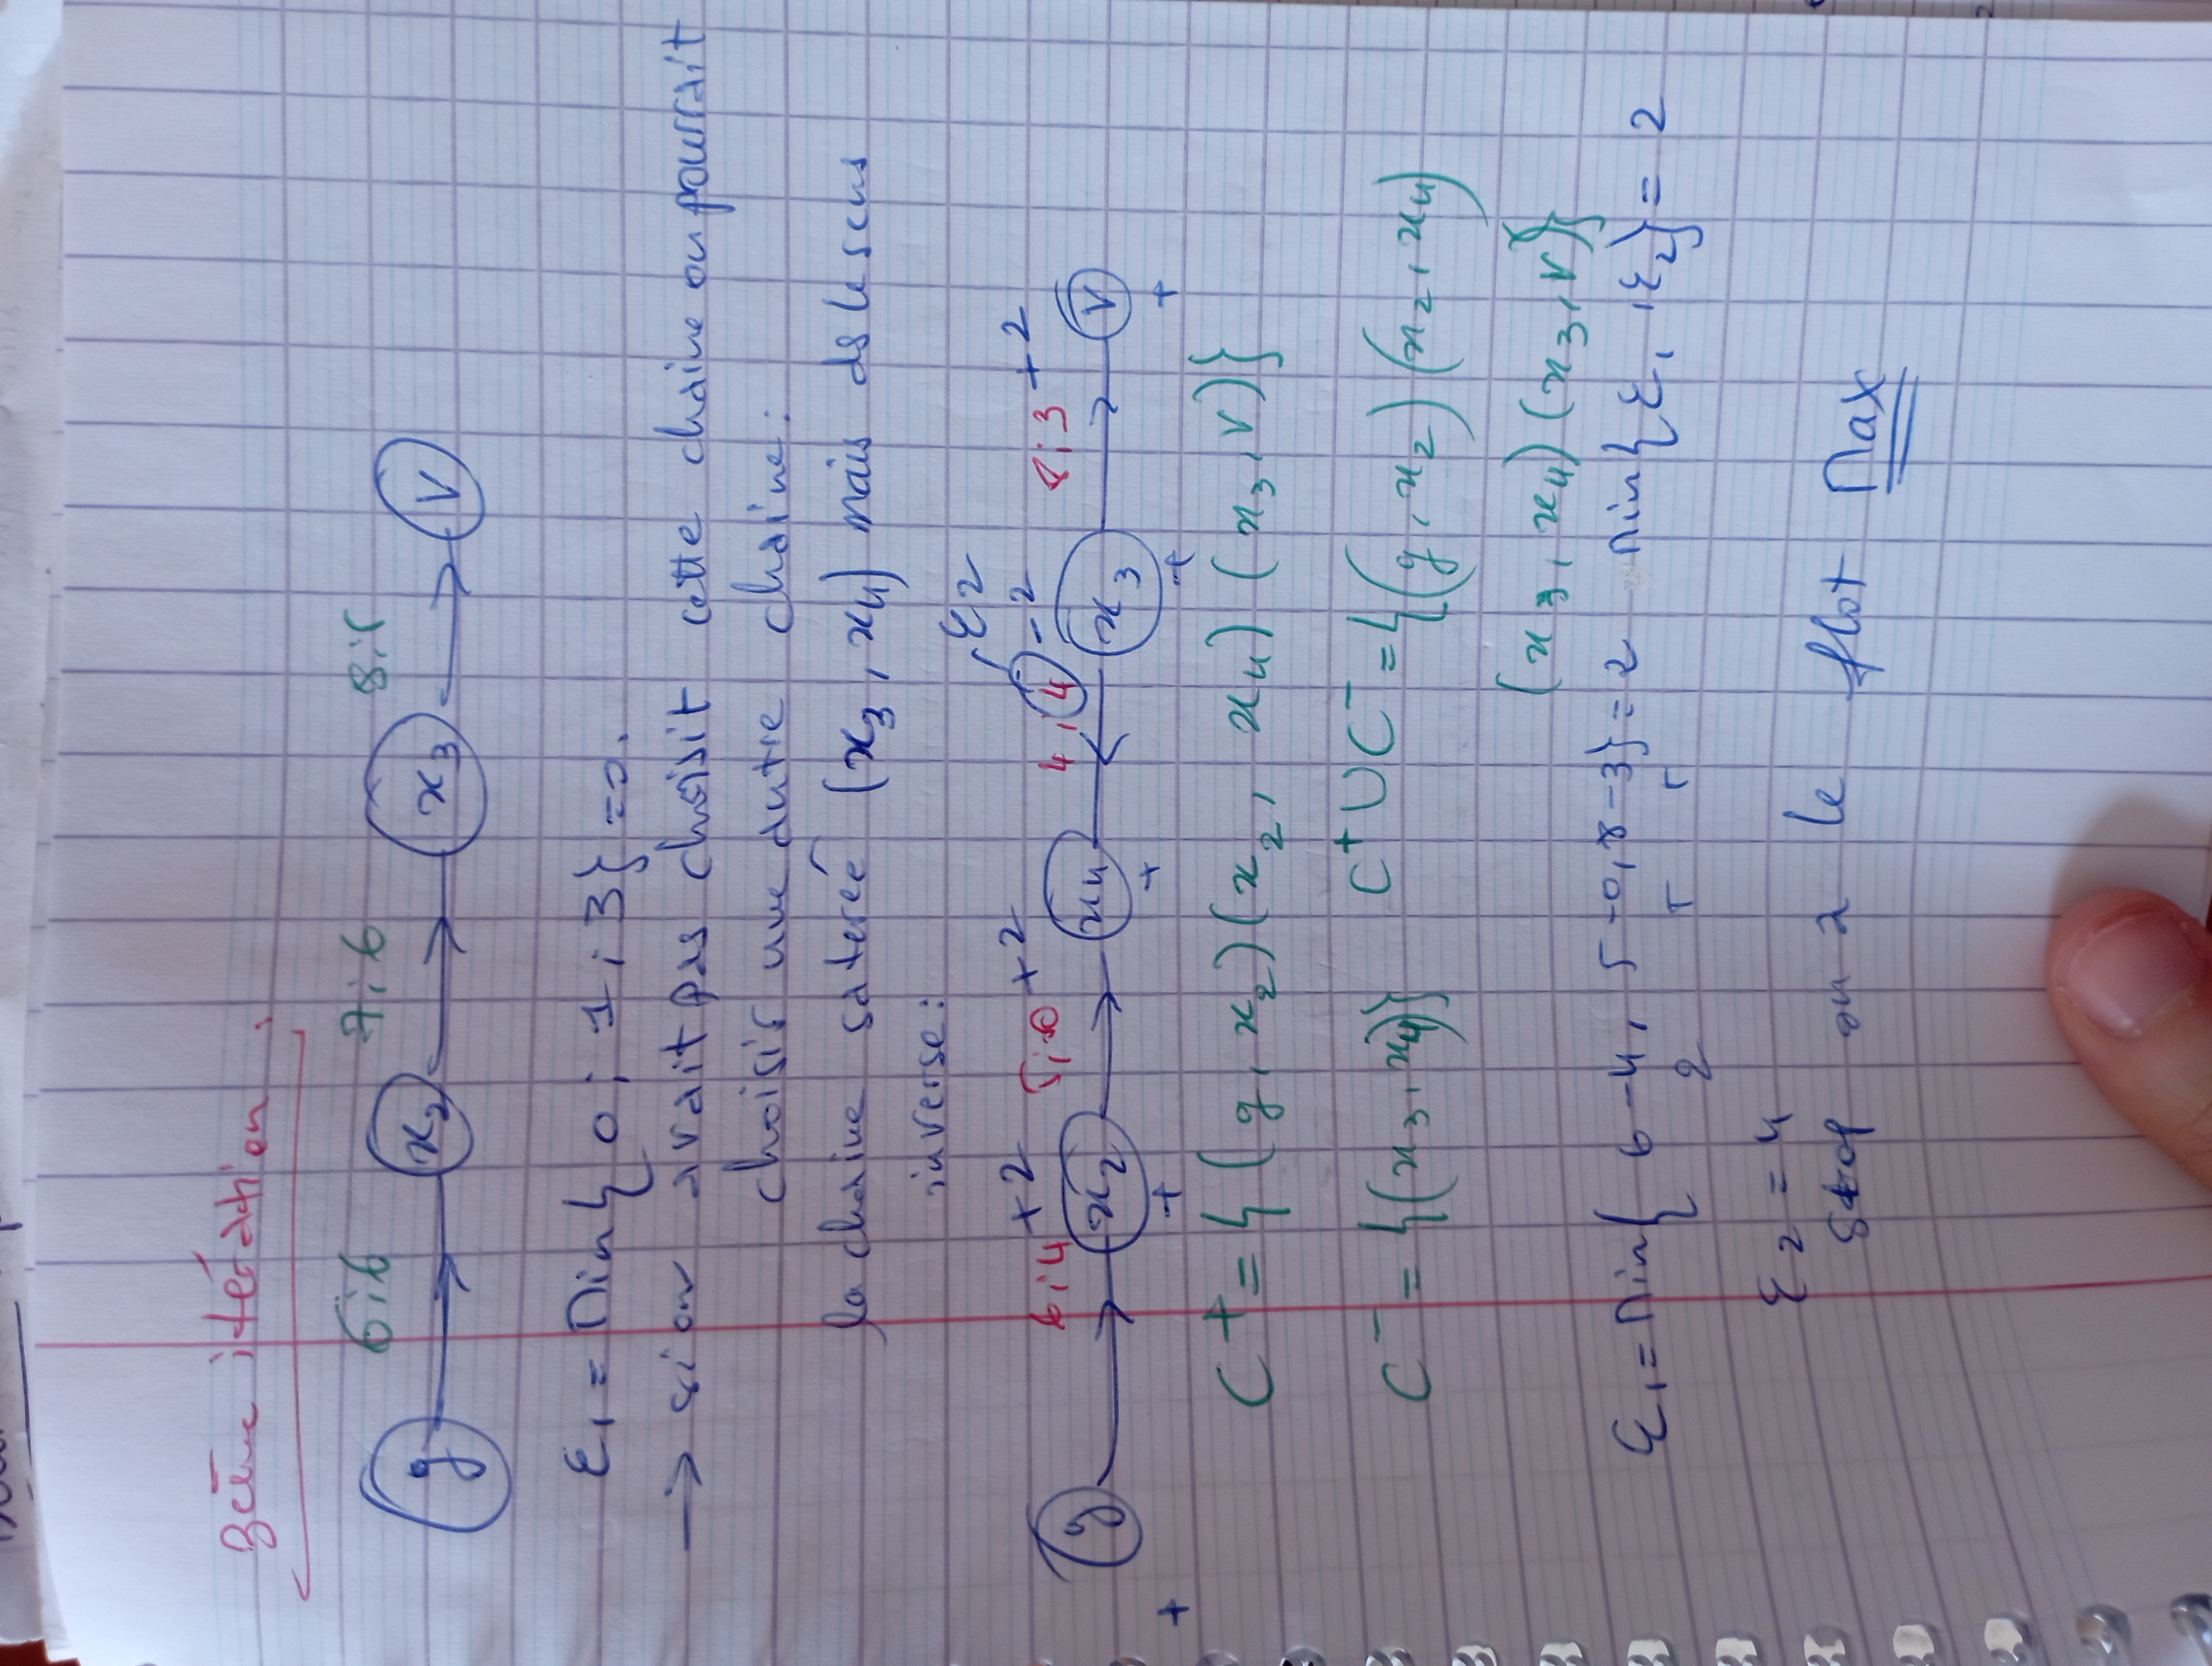 3ème itération.
6;6 7;6 8;5
g x₂ x₃ V
ε₁ = Min{ 0 ; 1 ; 3} = 0.
→ si on avait pas choisit cette chaine on pourrait
choisir une autre chaine:
la chaine (x₃, x₄) mais ds le sens
inverse:
ε2
+2 +2 -2 +2
6;4 5;0 4,4 8;3
g x₂ x₄ x₃ V
+ + + + +
C⁺ = { (g, x₂)(x₂, x₄) (x₃, V)}
C⁻ = {(x₃, x₄)} C⁺ ∪ C⁻ = {(g, x₂)(x₂, x₄)
(x₃, x₄) (x₃, V)}
ε₁ = Min{ 6-4, 5-0, 8-3} = 2 Min{ε₁, ε₂} = 2
2 5 5
ε₂ = 4
Stop on a le flot Max